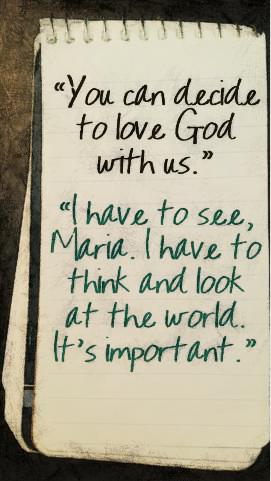 “You can decide
to love God
with us.”
“I have to see,
Maria. I have to
think and look
at the world.
It's important.”